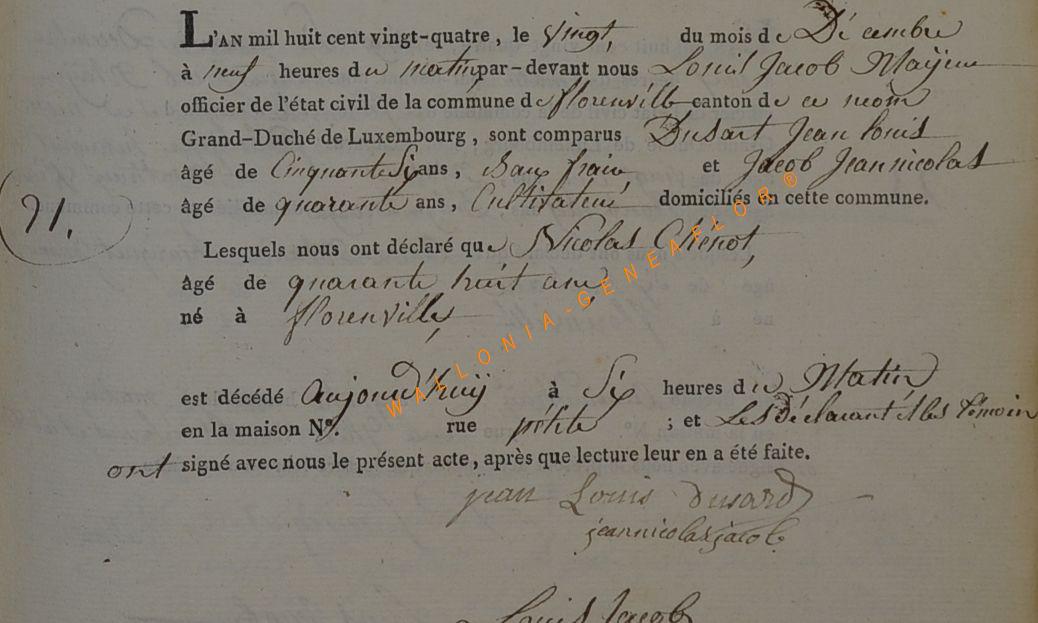 L'AN mil huit cent vingt-quatre, le vingt, du mois de Décembre
à neuf heures du matin par-devant nous Louis Jacob
officier de l'état civil de la commune de florenville canton de ce nom
Grand-Duché de Luxembourg, sont comparus Dusart Jean louis
âgé de Cinquante Six ans, et Jacob Jean nicolas
âgé de quarante ans, Cultivateur domiciliés en cette commune.
91.
Lesquels nous ont déclaré que Nicolas Chenot,
âgé de quarante huit ans
né à florenville,
est décédé aujourd'huÿ à Six heures du Matin
en la maison N°. rue pétite ; et Les déclarant et les témoin
ont signé avec nous le présent acte, après que lecture leur en a été faite.
jean Louis dusard
jean nicolas jacob
Louis Jacob
WALLONIA-GENEAFLOR®